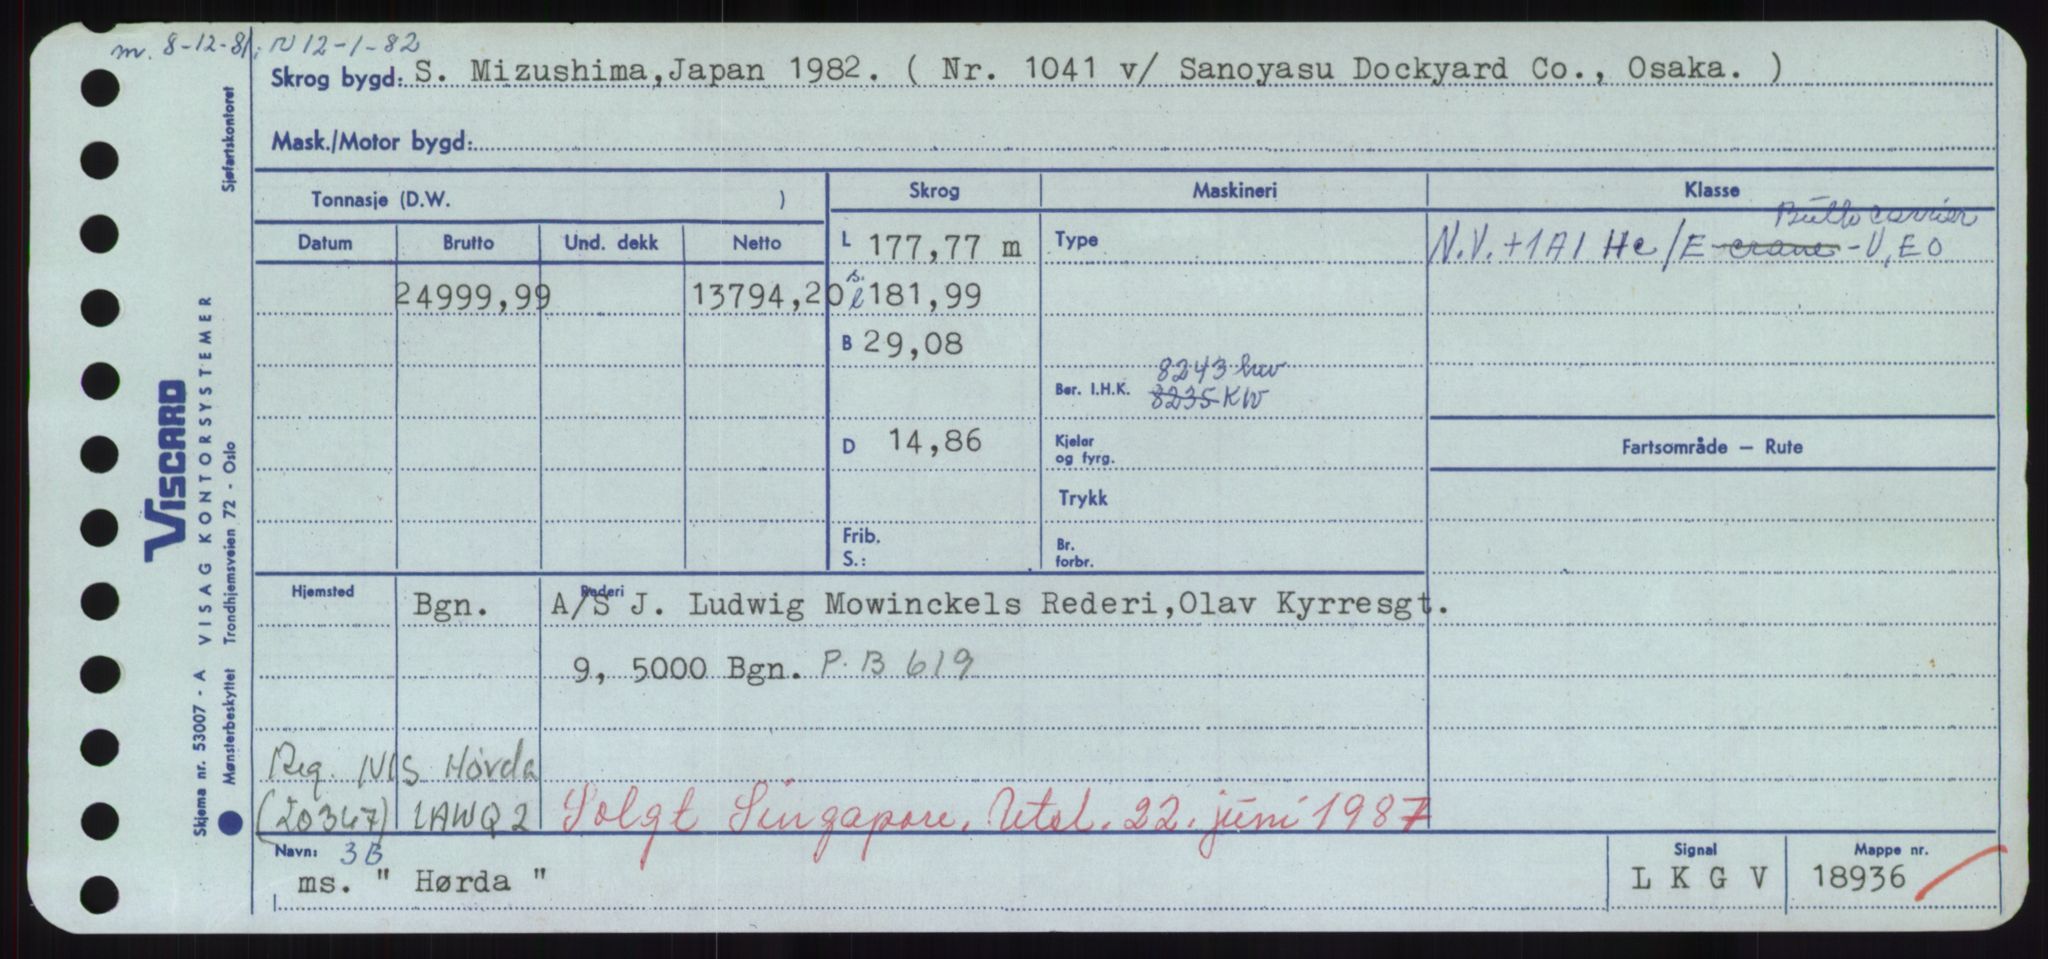 m. 8-12-81; N 12-1-82
Skrog bygd: S. Mizushima, Japan 1982. ( Nr. 1041 v/ Sanoyasu Dockyard Co., Osaka. )
Mask./Motor bygd:
Tonnasje (D.W. )
Skrog Maskineri Klasse
Datum Brutto Und. dekk Netto
24999,99 13794,20
L 177,77 m
s.l 181,99
B 29,08
D 14,86
Frib.
S.:
Type
8243 kw
Ber. I.H.K. 8235 KW
Kjeler
og fyrg.
Trykk
Br.
forbr.
Bulk carrier
N.V. +1A1 Hc/E-crane-V, EO
Fartsområde – Rute
Hjemsted Rederi
Bgn. A/S J. Ludwig Mowinckels Rederi, Olav Kyrresgt.
9, 5000 Bgn. P.B 619
Reg. NIS Hørda
(20347) LAWQ2 Solgt Singapore. Utsl. 22. juni 1987
Navn: 3B
ms. " Hørda "
Signal
L K G V
Mappe nr.
18936
VISCARD
Skjema nr. 53007 - A VISAG KONTORSYSTEMER
Mønsterbeskyttet Trondhjemsveien 72 - Oslo
Sjøfartskontoret